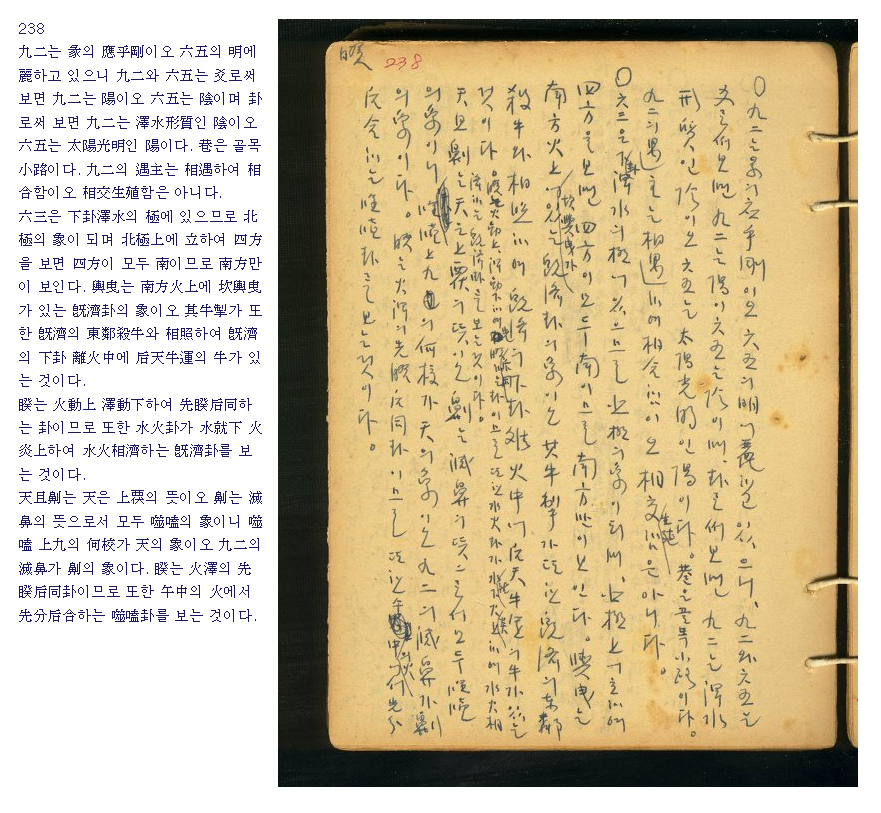 238
九二는 彖의 應乎剛이오 六五의 明에
麗하고 있으니 九二와 六五는 爻로써
보면 九二는 陽이오 六五는 陰이며 卦
로써 보면 九二는 澤水形質인 陰이오
六五는 太陽光明인 陽이다. 巷은 골목
小路이다. 九二의 遇主는 相遇하여 相
合함이오 相交生殖함은 아니다.
六三은 下卦澤水의 極에 있으므로 北
極의 象이 되며 北極上에 立하여 四方
을 보면 四方이 모두 南이므로 南方만
이 보인다. 輿曳는 南方火上에 坎輿曳
가 있는 旣濟卦의 象이오 其牛掣가 또
한 旣濟의 東鄰殺牛와 相照하여 旣濟
의 下卦 離火中에 后天牛運의 牛가 있
는 것이다.
睽는 火動上 澤動下하여 先睽后同하
는 卦이므로 또한 水火卦가 水就下 火
炎上하여 水火相濟하는 旣濟卦를 보
는 것이다.
天且劓는 天은 上 뜻이오 劓는 滅
鼻의 뜻으로서 모두 噬嗑의 象이니 噬
嗑 上九의 何校가 天의 象이오 九二의
滅鼻가 劓의 象이다. 睽는 火澤의 先
睽后同卦이므로 또한 午中의 火에서
先分后合하는 噬嗑卦를 보는 것이다.
睽 238
〇九二는彖의應乎剛이오 六五의明에麗하고있으니, 九二와六五는
爻로써보면 九二는陽이오六五는陰이며, 卦로써보면 九二는澤水
形質인陰이오 六五는太陽光明인陽이다. 巷은골목小路이다.
九二의遇主는相遇하여相合함이오 相交生殖함은아니다.
〇六三은下卦澤水의極에있으므로 北極의象이되며, 北極上에立하여
四方을보면 四方이모두南이므로 南方만이보인다. 輿曳는
南方火上에坎輿曳가있는旣濟卦의象이오 其牛掣가또한旣濟의東鄰
殺牛와相照하여 旣濟의下卦離火中에后天牛運의牛가있는
것이다. 睽는火動上澤動下하여先睽后同하는卦이므로또한水火卦가水就下火炎上하여水火相
濟하는旣濟卦를보는것이다.
天且劓는天은上 뜻이오 劓는滅鼻의뜻으로서모두噬嗑
의象이니 噬嗑上九의何校가天의象이오九二의滅鼻가劓
의象이다. 睽는火澤의先睽后同卦이므로 또한午中의火에서先分
后合하는噬嗑卦를보는것이다.